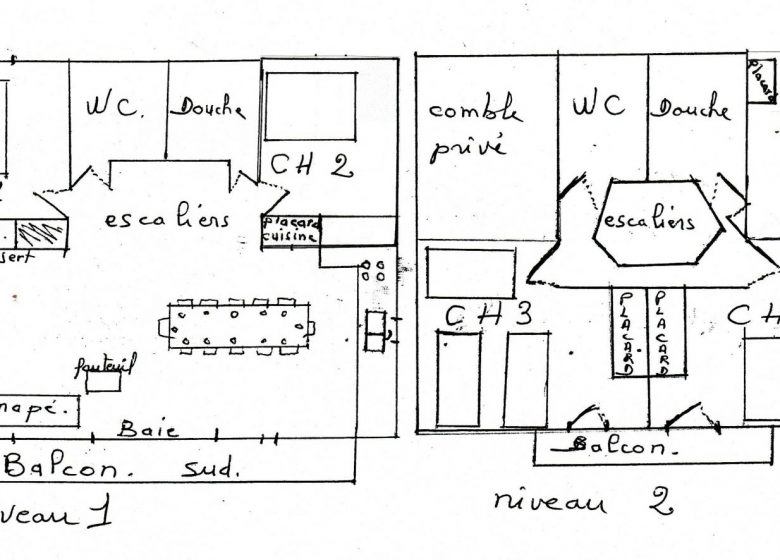 WC.
Douche
CH 2
escaliers
placard
cuisine
sert
fauteuil
napé.
Baie
Balcon. sud.
veau 1
comble
privé
WC
Douche
placard
escaliers
CH 3
PLACARD
PLACARD
CH
Balcon.
niveau 2